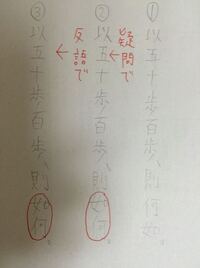 ①以五十歩百歩、則何如。
疑問で
←
②以五十歩百歩、則如何。
反語で
←
③以五十歩百歩、則如何。